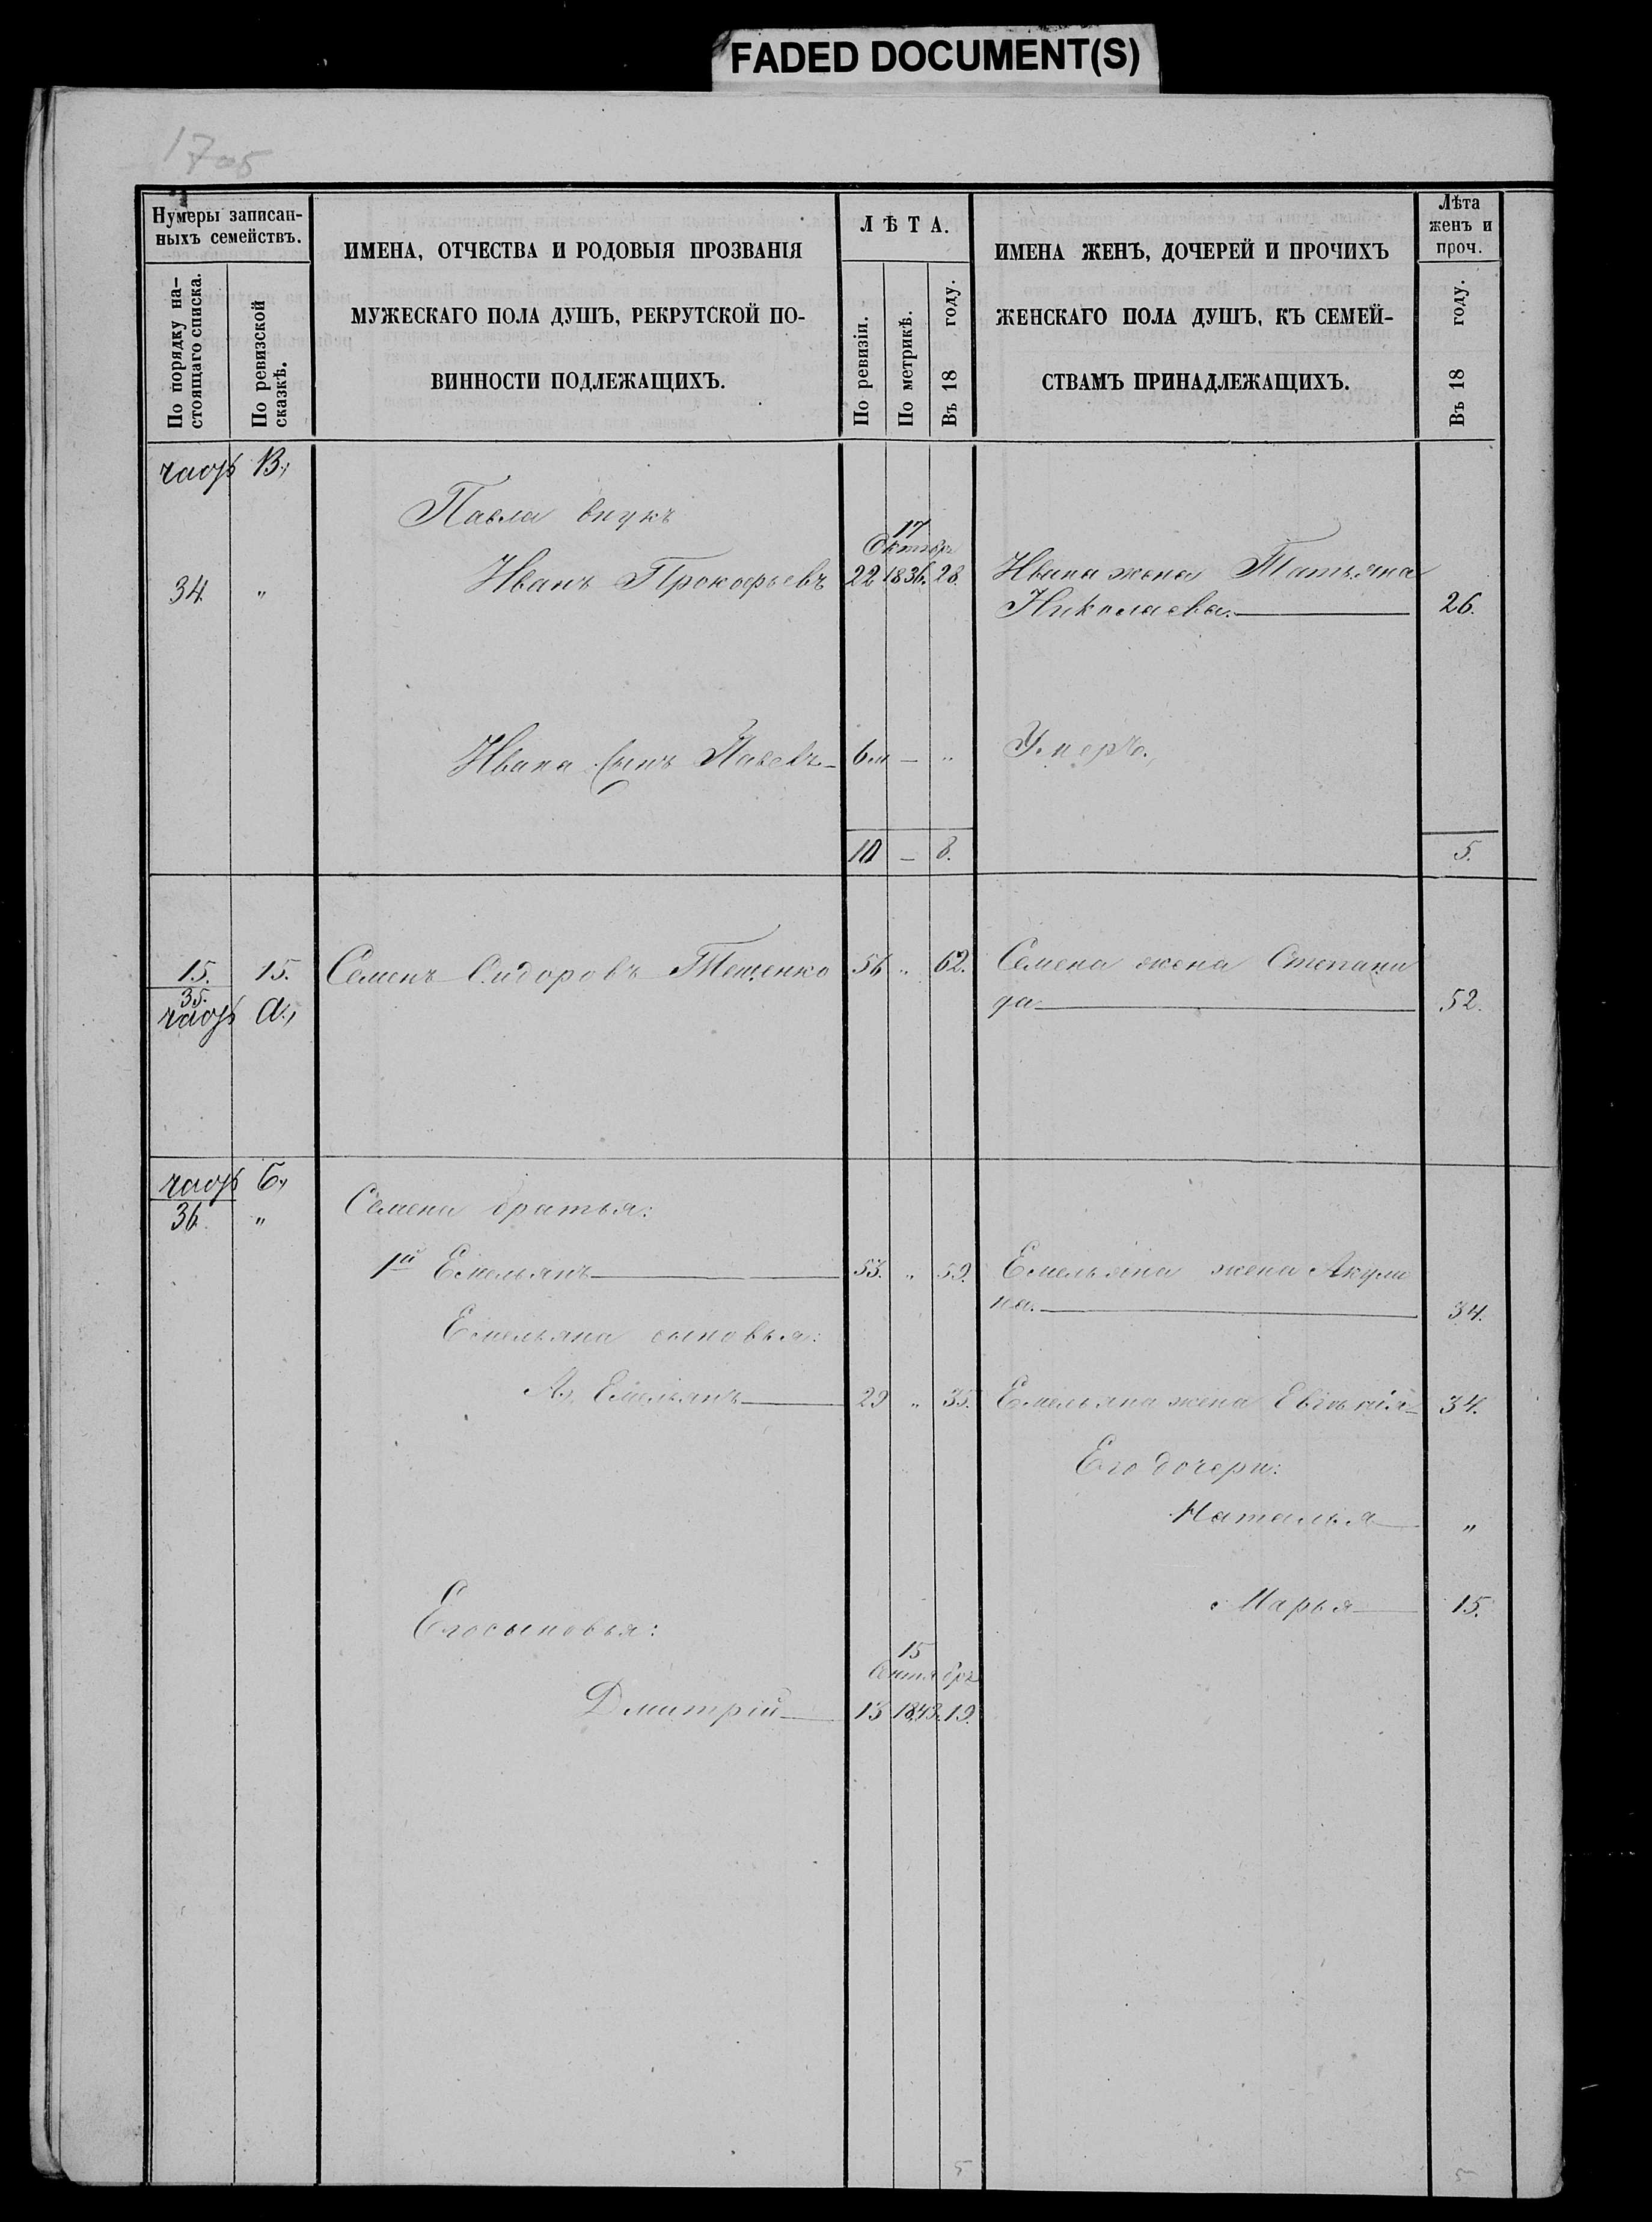 FADED DOCUMENT(S)
Нумеры записан-
ныхъ семействъ.
По порядку на-
стоящаго списка.
По ревизской
сказкѣ.
ИМЕНА, ОТЧЕСТВА И РОДОВЫЯ ПРОЗВАНІЯ
МУЖЕСКАГО ПОЛА ДУШЪ, РЕКРУТСКОЙ ПО-
ВИННОСТИ ПОДЛЕЖАЩИХЪ.
ЛѢТА.
По ревизіи.
По метрикѣ.
Въ 18 году.
ИМЕНА ЖЕНЪ, ДОЧЕРЕЙ И ПРОЧИХЪ
ЖЕНСКАГО ПОЛА ДУШЪ, КЪ СЕМЕЙ-
СТВАМЪ ПРИНАДЛЕЖАЩИХЪ.
Лѣта
женъ и
проч.
Въ 18 году.
В.,
Павла внукъ
17
Октябр
34 " Иванъ Прокофьевъ 22 1836. 28. Ивана жена Татьяна
Николаева. 26.
Ивана сынъ Павелъ 6м — " Умеръ.
10 — 8. 5.
15. 15. Семенъ Сидоровъ Тещенко 56 " 62. Семена жена Степани
да 52.
35.
а.,
Б.,
36. " Семена братья:
1й Емельянъ 53. " 59. Емельяна жена Акули
на. 34.
Емельяна сыновья:
А., Емельянъ 29 " 35. Емельяна жена Евгѣнія 34.
Его дочери:
Наталья "
Марья 15.
Его сыновья:
15
Сентябрь
Дмитрій 13 1843. 19.
5 5